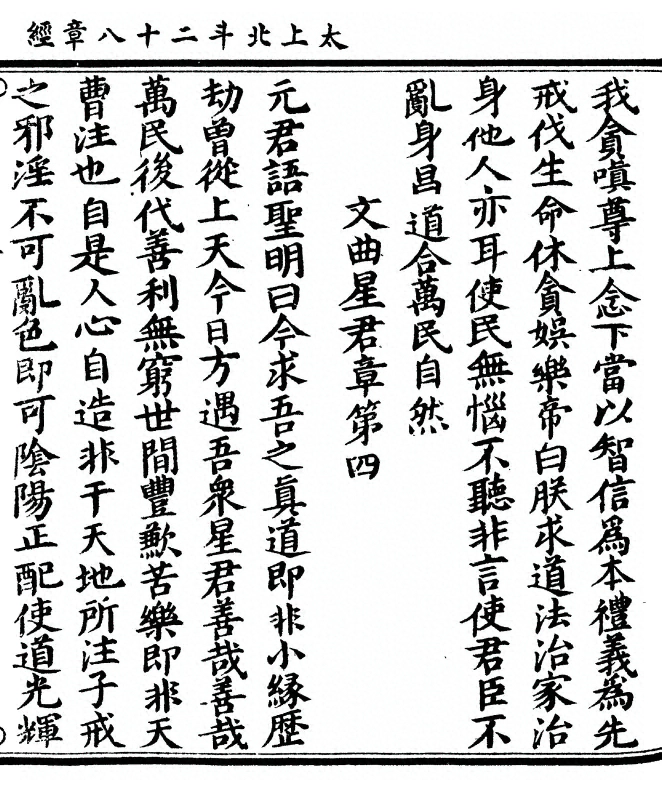 太上北斗二十八章經
我貪嗔尊上念下當以智信為本禮義為先
戒伐生命休貪娛樂帝曰朕求道法治家治
身他人亦耳使民無惱不聽非言使君臣不
亂身昌道合萬民自然
文曲星君章第四
元君語聖明曰今求吾之眞道即非小緣歴
劫曾從上天今日方遇吾衆星君善哉善哉
萬民後代善利無窮世間豐歉苦樂即非天
曹注也自是人心自造非干天地所注子戒
之邪淫不可亂色即可陰陽正配使道光輝